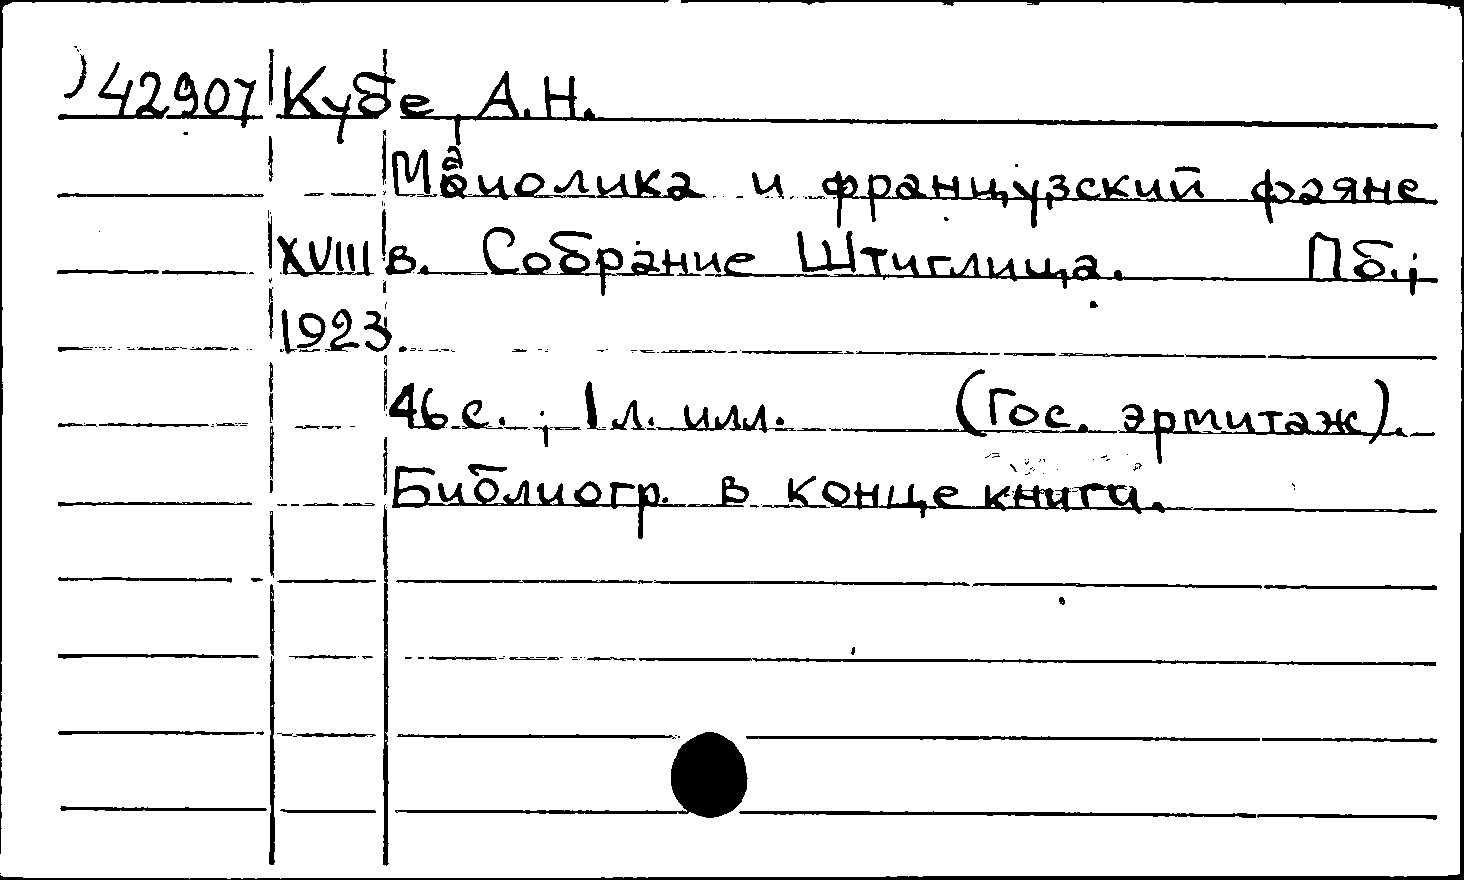 )42907 Кубе, А.Н.
Маиолика и французский фаянс
XVIII в. Собрание Штиглица. Пб.,
1923.
46 с., 1 л. илл. (Гос. эрмитаж).
Библиогр. в конце книги.